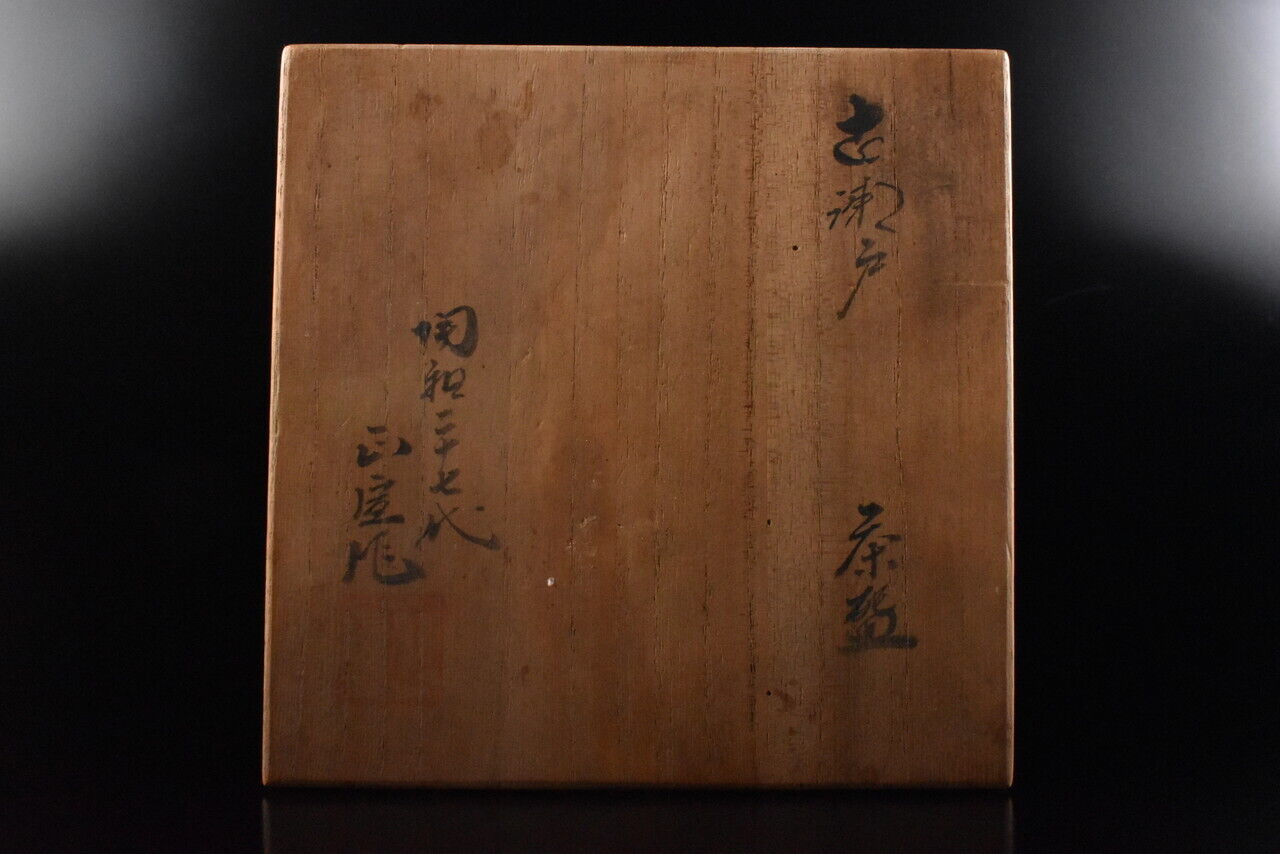 古瀬戸 茶盌
陶祖二十七代
正作